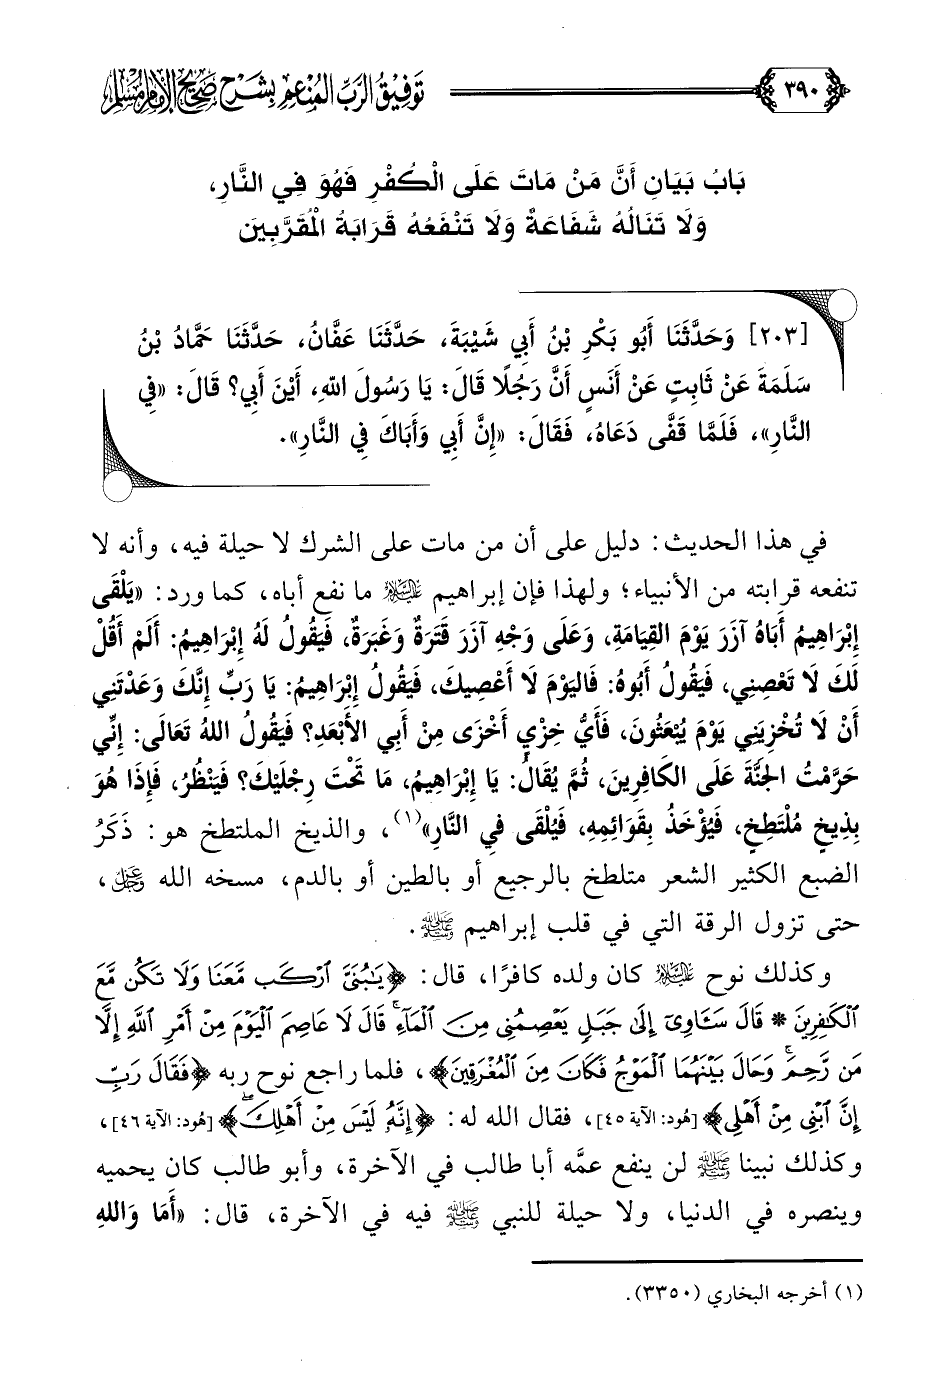 ٣٩٠ توفيق الرب المنعم بشرح صحيح الإمام مسلم
بَابُ بَيَانِ أَنَّ مَنْ مَاتَ عَلَى الْكُفْرِ فَهُوَ فِي النَّارِ،
وَلَا تَنَالُهُ شَفَاعَةٌ وَلَا تَنْفَعُهُ قَرَابَةُ الْمُقَرَّبِينَ
[٢٠٣] وَحَدَّثَنَا أَبُو بَكْرِ بْنُ أَبِي شَيْبَةَ، حَدَّثَنَا عَفَّانُ، حَدَّثَنَا حَمَّادُ بْنُ
سَلَمَةَ عَنْ ثَابِتٍ عَنْ أَنَسٍ أَنَّ رَجُلًا قَالَ: يَا رَسُولَ اللهِ، أَيْنَ أَبِي؟ قَالَ: «فِي
النَّارِ»، فَلَمَّا قَفَّى دَعَاهُ، فَقَالَ: «إِنَّ أَبِي وَأَبَاكَ فِي النَّارِ».
في هذا الحديث: دليل على أن من مات على الشرك لا حيلة فيه، وأنه لا
تنفعه قرابته من الأنبياء؛ ولهذا فإن إبراهيم عليه السلام ما نفع أباه، كما ورد: «يَلْقَى
إِبْرَاهِيمُ أَبَاهُ آزَرَ يَوْمَ القِيَامَةِ، وَعَلَى وَجْهِ آزَرَ قَتَرَةٌ وَغَبَرَةٌ، فَيَقُولُ لَهُ إِبْرَاهِيمُ: أَلَمْ أَقُلْ
لَكَ لَا تَعْصِنِي، فَيَقُولُ أَبُوهُ: فَاليَوْمَ لَا أَعْصِيكَ، فَيَقُولُ إِبْرَاهِيمُ: يَا رَبِّ إِنَّكَ وَعَدْتَنِي
أَنْ لَا تُخْزِيَنِي يَوْمَ يُبْعَثُونَ، فَأَيُّ خِزْيٍ أَخْزَى مِنْ أَبِي الأَبْعَدِ؟ فَيَقُولُ اللهُ تَعَالَى: إِنِّي
حَرَّمْتُ الجَنَّةَ عَلَى الكَافِرِينَ، ثُمَّ يُقَالُ: يَا إِبْرَاهِيمُ، مَا تَحْتَ رِجْلَيْكَ؟ فَيَنْظُرُ، فَإِذَا هُوَ
بِذِيخٍ مُلْتَطِخٍ، فَيُؤْخَذُ بِقَوَائِمِهِ، فَيُلْقَى فِي النَّارِ»(١)، والذيخ الملتطخ هو: ذَكَرُ
الضبع الكثير الشعر متلطخ بالرجيع أو بالطين أو بالدم، مسخه الله عز وجل،
حتى تزول الرقة التي في قلب إبراهيم ﷺ.
وكذلك نوح عليه السلام كان ولده كافرًا، قال: ﴿يَٰبُنَيَّ ٱرْكَب مَّعَنَا وَلَا تَكُن مَّعَ
ٱلْكَٰفِرِينَ * قَالَ سَـَٔاوِىٓ إِلَىٰ جَبَلٍ يَعْصِمُنِى مِنَ ٱلْمَآءِ ۚ قَالَ لَا عَاصِمَ ٱلْيَوْمَ مِنْ أَمْرِ ٱللَّهِ إِلَّا
مَن رَّحِمَ ۚ وَحَالَ بَيْنَهُمَا ٱلْمَوْجُ فَكَانَ مِنَ ٱلْمُغْرَقِينَ﴾، فلما راجع نوح ربه ﴿فَقَالَ رَبِّ
إِنَّ ٱبْنِى مِنْ أَهْلِى﴾ [هُود: الآية ٤٥]، فقال الله له: ﴿إِنَّهُ لَيْسَ مِنْ أَهْلِكَ ۖ﴾ [هُود: الآية ٤٦]،
وكذلك نبينا ﷺ لن ينفع عمَّه أبا طالب في الآخرة، وأبو طالب كان يحميه
وينصره في الدنيا، ولا حيلة للنبي ﷺ فيه في الآخرة، قال: «أَمَا وَاللهِ
(١) أخرجه البخاري (٣٣٥٠).